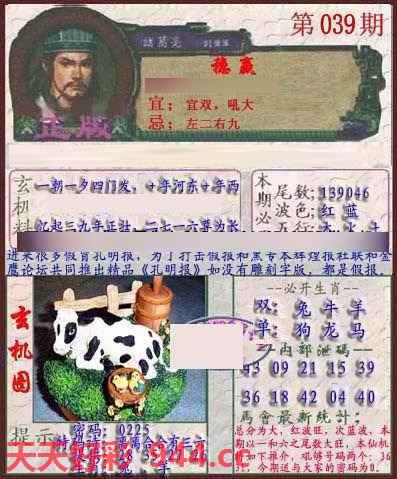 第039期
諸葛亮
稳赢
宜；宜双，吼大
忌；左二右九
正版
玄机料
一朝一夕四门发，十年河东十年西
忆起三九年正社，二七一六尊为长
本期必
尾数:139046
波色:红 蓝
五行:
近来很多假冒孔明报，为了打击假报和黑专本辉煌报社联和金
鹰论坛共同推出精品《孔明报》如没有雕刻字版，都是假报。
玄机图
必开生肖
双: 兔牛羊
单: 狗龙马
内部泄码
43 09 21 15 39
36 18 42 04 40
馬會最新統計:
总分为大，红波旺，次蓝波，本
期以一和六之尾数大旺，本仙机
如下推介，吼够号码两个：36
5，今期送与大家的密码为0。
提示
密码：0225
天天好彩 944.cc